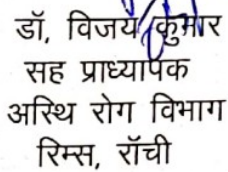 डॉ, विजय कुमार
सह प्राध्यापक
अस्थि रोग विभाग
रिम्स, रॉची